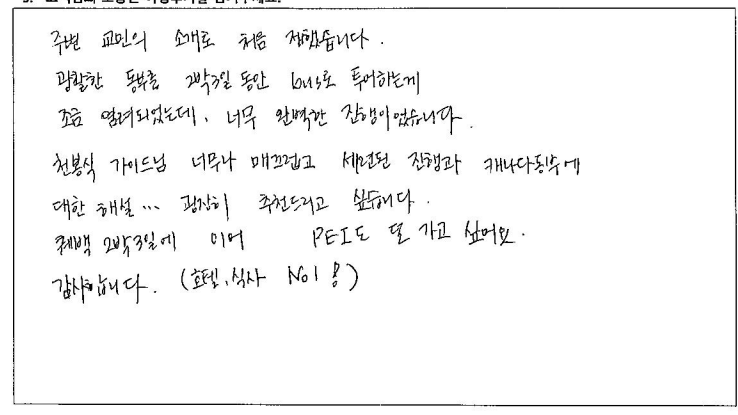 주변 교민의 소개로 처음 접했습니다.
광활한 동부를 2박3일 동안 bus로 투어하는게
조금 염려되었는데, 너무 완벽한 진행이었습니다.
천봉식 가이드님 너무나 매끄럽고 세련된 진행과 캐나다동부에
대한 해설... 굉장히 추천드리고 싶습니다.
퀘백 2박3일에 이어 PEI도 또 가고 싶어요.
감사합니다. (호텔, 식사 No1